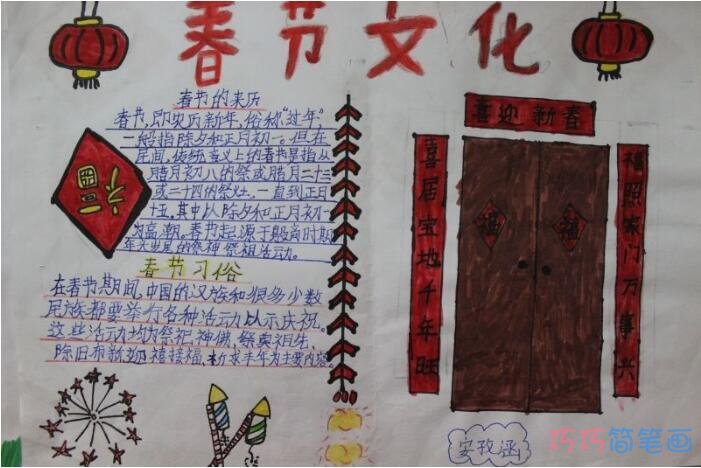 春节文化
春节的来历
春节,即农历新年,俗称“过年”,
一般指除夕和正月初一。但在
民间,传统意义上的春节是指从
腊月初八的祭或腊月二十三
或二十四的祭灶,一直到正月
十五,其中以除夕和正月初一
为高潮。春节起源于殷商时期
年头岁尾的祭神祭祖活动。
春节习俗
在春节期间,中国的汉族和很多少数
民族都要举行各种活动以示庆祝。
这些活动均以祭祀神佛、祭奠祖先、
除旧布新迎禧接福、祈求丰年为主要内容。
福
喜迎新春
喜居宝地千年旺
福照家门万事兴
福
福
安孜涵
巧巧简笔画